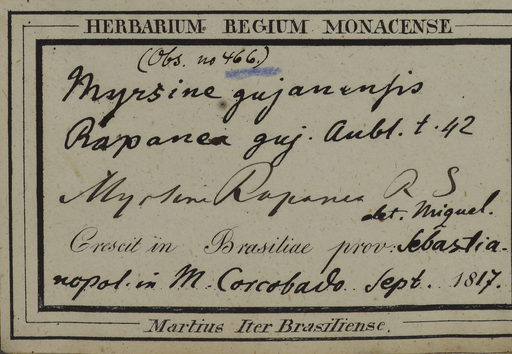 HERBARIUM REGIUM MONACENSE
(Obs. no 466.)
Myrsine gujanensis
Rapanea guj. Aubl. t. 42
Myrsine Rapanea R S
det. Miquel.
Crescit in Brasiliae prov: Sebastia-
nopol. in M. Corcobado. Sept. 1817.
Martius Iter Brasiliense.